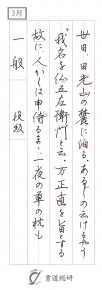 3月
廿日、日光山の麓に泊る。あるじの云けるやう、
「我名を仏五左衛門と云。万正直を旨とする
故に、人かくは申侍るまゝ、一夜の草の枕も
一般　段級
書道総研